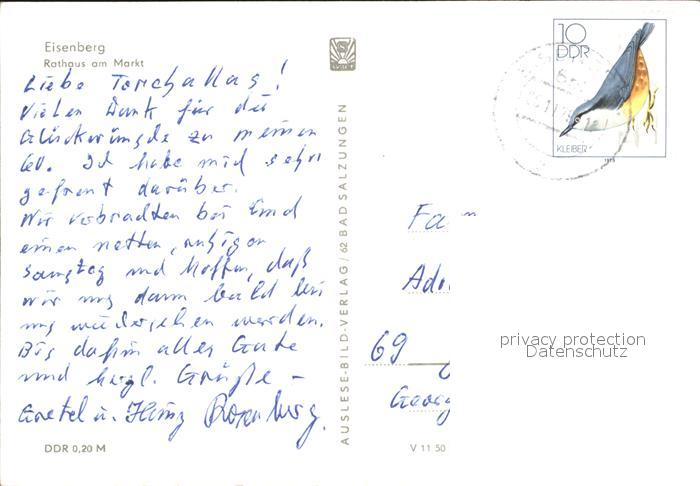 Eisenberg
Rathaus am Markt
Liebe Torchallas!
Vielen Dank für die
Glückwünsche zu meinem
60. Ich habe mich sehr
gefreut darüber.
Wir verbrachten bei Euch
einen netten, ruhigen
Samstag und hoffen, daß
wir uns dann bald bei
uns wiedersehen werden.
Bis dahin alles Gute
und herzl. Grüße -
Gretel u. Heinz Rosenburg.
DDR 0,20 M
AUSLESE-BILD-VERLAG / 62 BAD SALZUNGEN
V 11 50
10
DDR
KLEIBER
Fa
Ado
69
Georg
privacy protection
Datenschutz